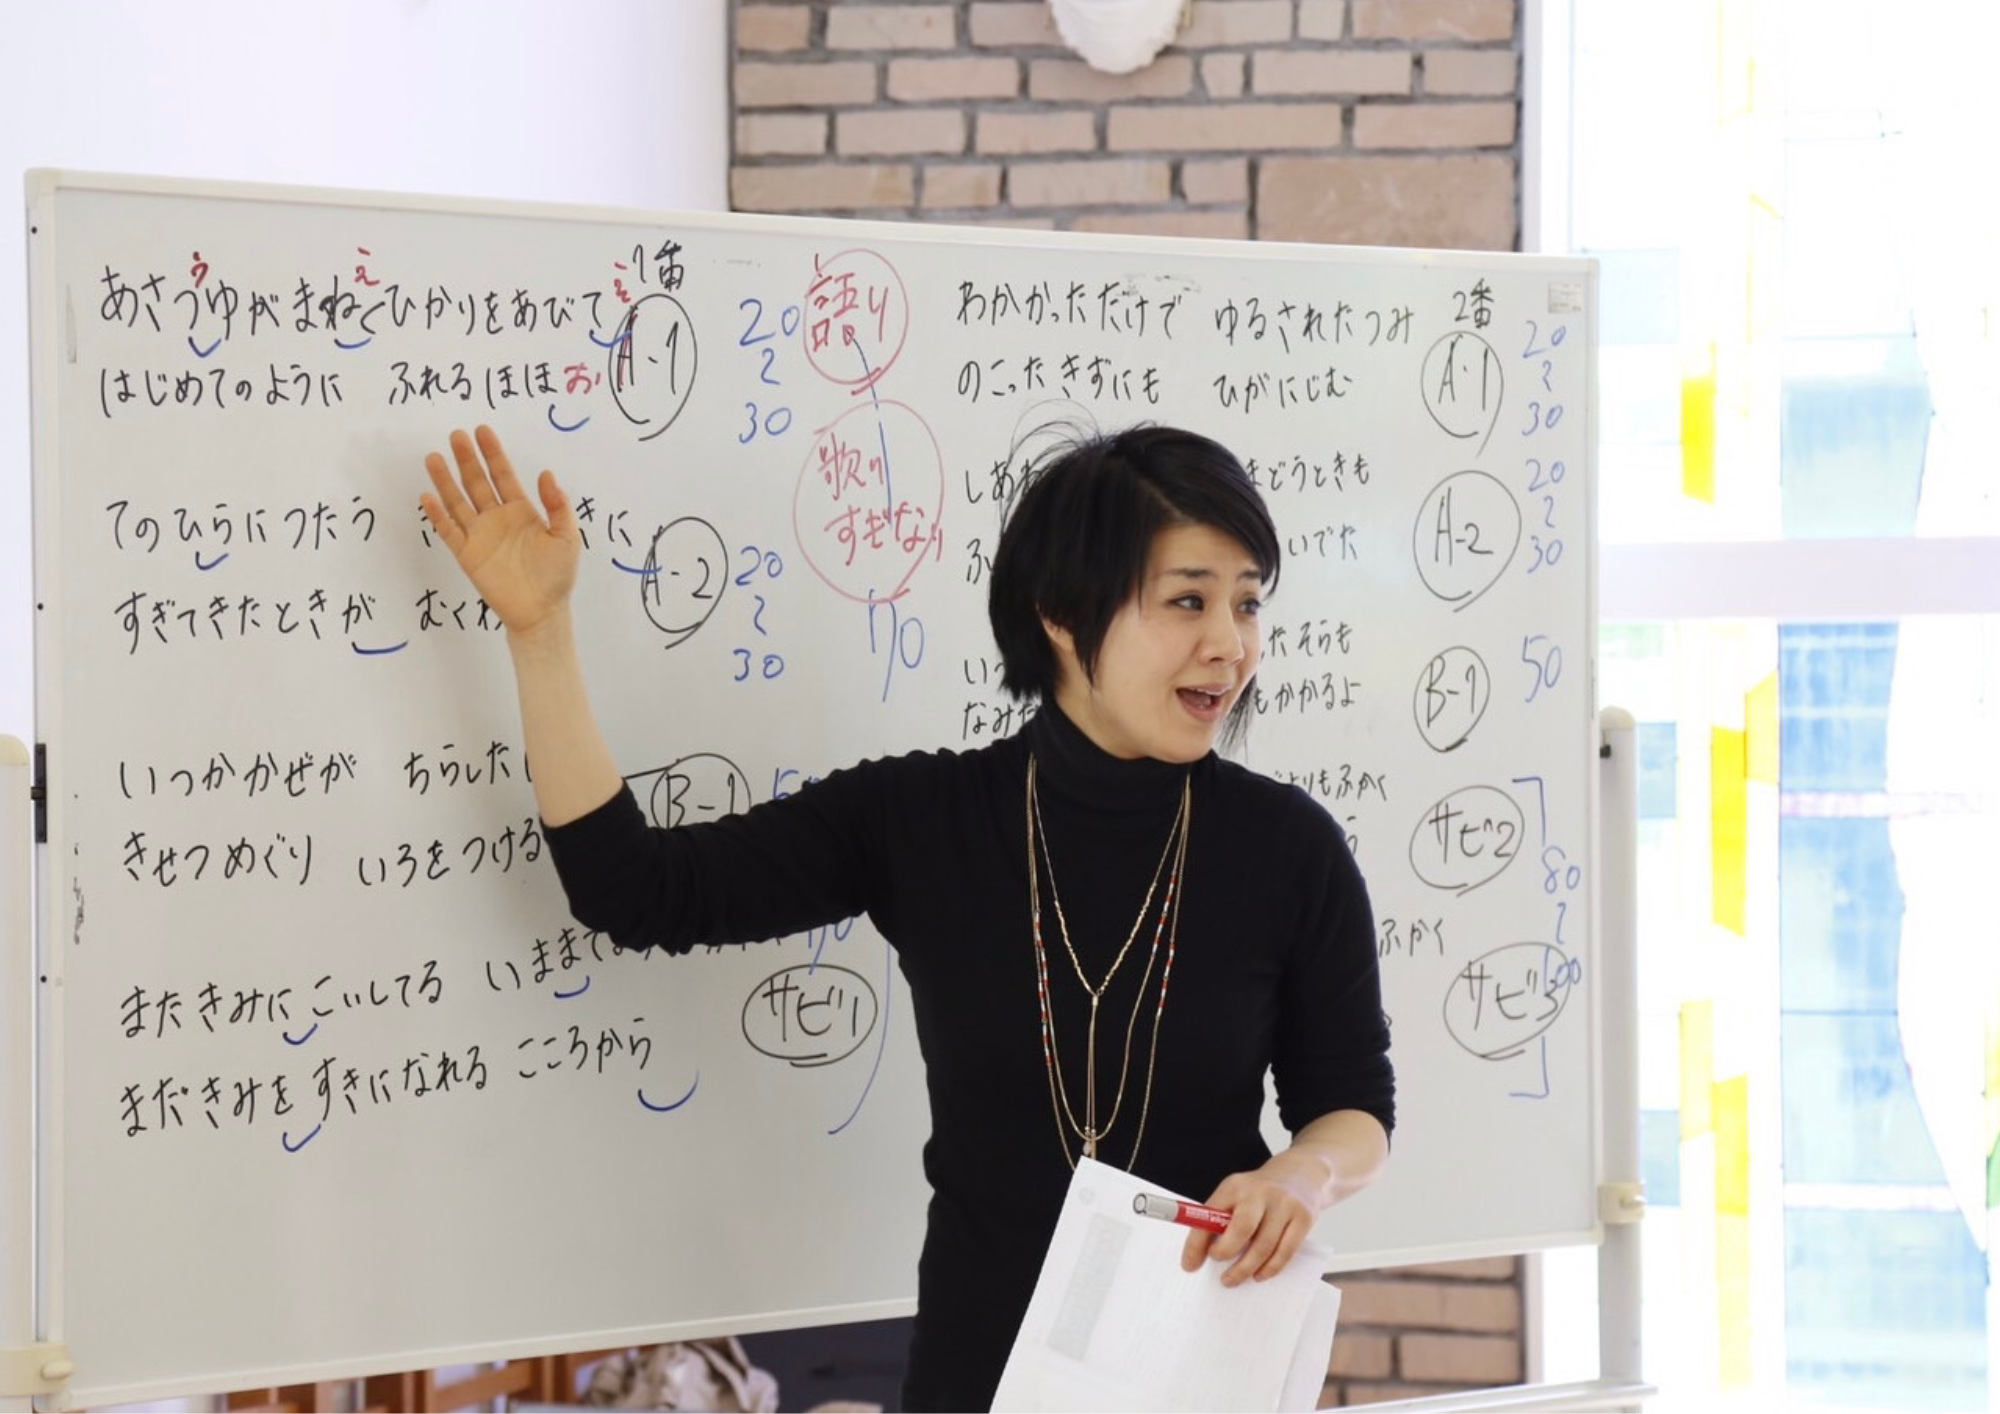 1番
あさつゆがまねく ひかりをあびて
A-1
はじめてのように ふれるほほ
お
20
2
30
てのひらにつたう
きに
A-2
すぎてきたときが むくわ
20
2
30
いつかかぜが ちらした
B-1
きせつめぐり いろをつける
またきみにこいしてる いままで
サビ1
まだきみをすきになれる こころから
語り
歌い
すぎない
2番
わかかっただけで ゆるされたつみ
A-1
のこったきずにも ひがにじむ
20
2
30
しあわ
まどうときも
A-2
ふ
いでた
20
2
30
いつ
たそらも
B-1
50
なみだ
もかかるよ
よりもふかく
サビ2
80
2
100
ふかく
サビ3